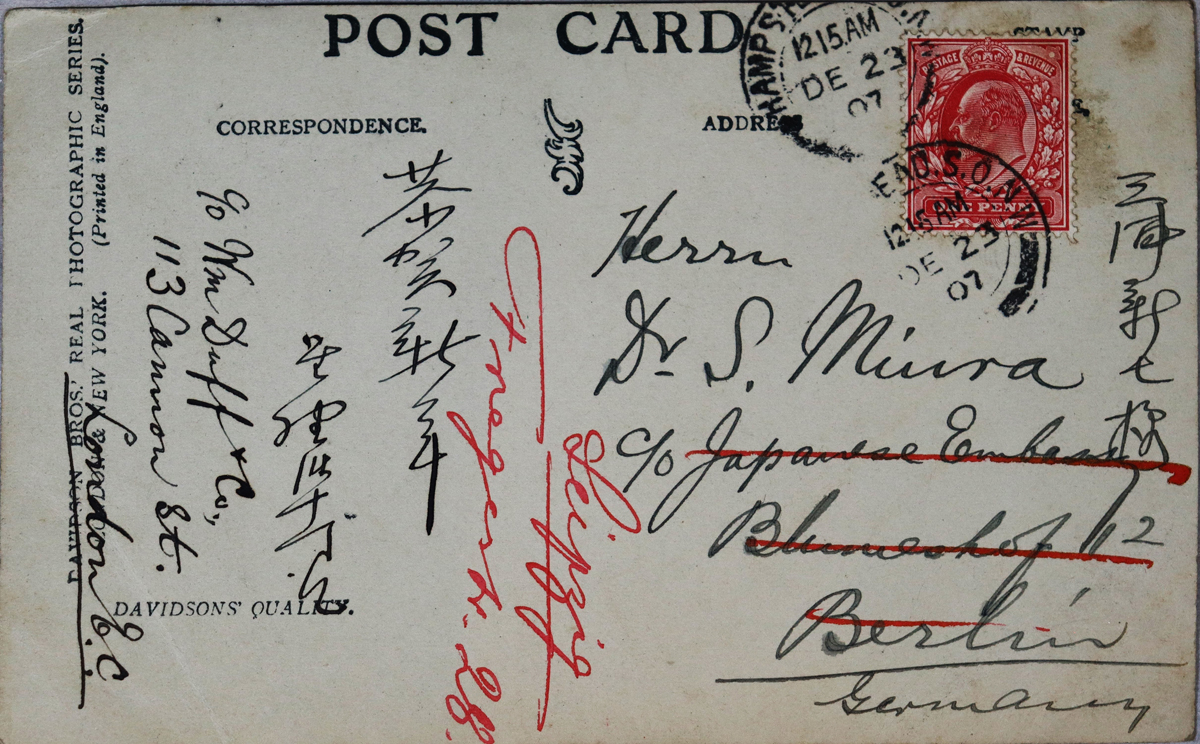 POST CARD
CORRESPONDENCE.
ADDRESS
DAVIDSON BROS.' REAL PHOTOGRAPHIC SERIES.
LONDON & NEW YORK. (Printed in England).
DAVIDSONS' QUALITY.
12.15.AM
DE 23
07
POSTAGE & REVENUE
ONE PENNY
EAD.S.O.N.W.
12.15 AM
DE 23
07
Herrn
Dr. S. Miura
c/o Japanese Embassy
Blumeshof 12
Berlin
Germany
恭賀新年
c/o Wm Duff & Co.,
113 Cannon St.
London E.C.
Leipzig